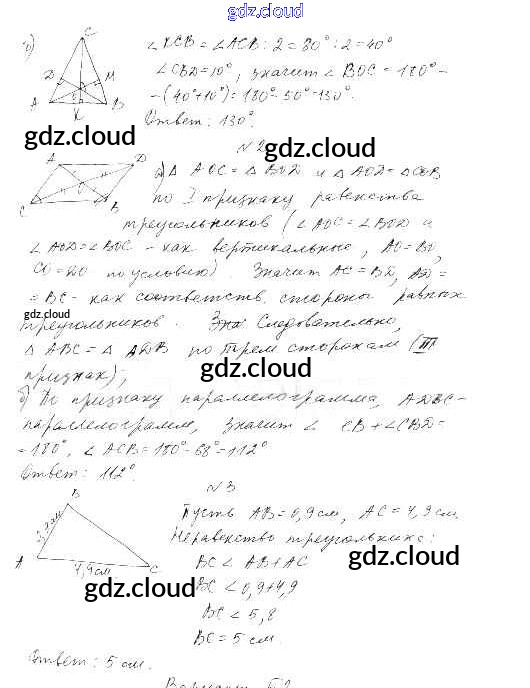 gdz.cloud
б)
C
D
M
A
K
B
∠KCB = ∠ACB : 2 = 80° : 2 = 40°
∠CBD = 10°, значит ∠BOC = 180° -
- (40°+10°) = 180° - 50° = 130°.
Ответ: 130°.
gdz.cloud
N 2
gdz.cloud
A
D
O
C
B
а) △ AOC = △ BOD и △ AOD = △ COB
по I признаку равенства
треугольников (∠AOC = ∠BOD и
∠AOD = ∠BOC - как вертикальные, AO = BO,
CO = DO по условию). Значит AC = BD, AD =
= BC - как соответств. стороны равных
gdz.cloud
треугольников. Следовательно,
△ ABC = △ ADB по трем сторонам (III
признак);
gdz.cloud
б) По признаку параллелограмма, ADBC-
параллелограмм, значит ∠ CB + ∠CBD =
= 180°, ∠ ACB = 180° - 68° = 112°
Ответ: 112°
N 3
B
A
4,9 см
C
Пусть AB = 0,9 см, AC = 4,9 см.
Неравенство треугольника:
BC < AB + AC
gdz.cloud
gdz.cloud
BC < 0,9 + 4,9
BC < 5,8
BC = 5 см.
Ответ: 5 см.
Вариант